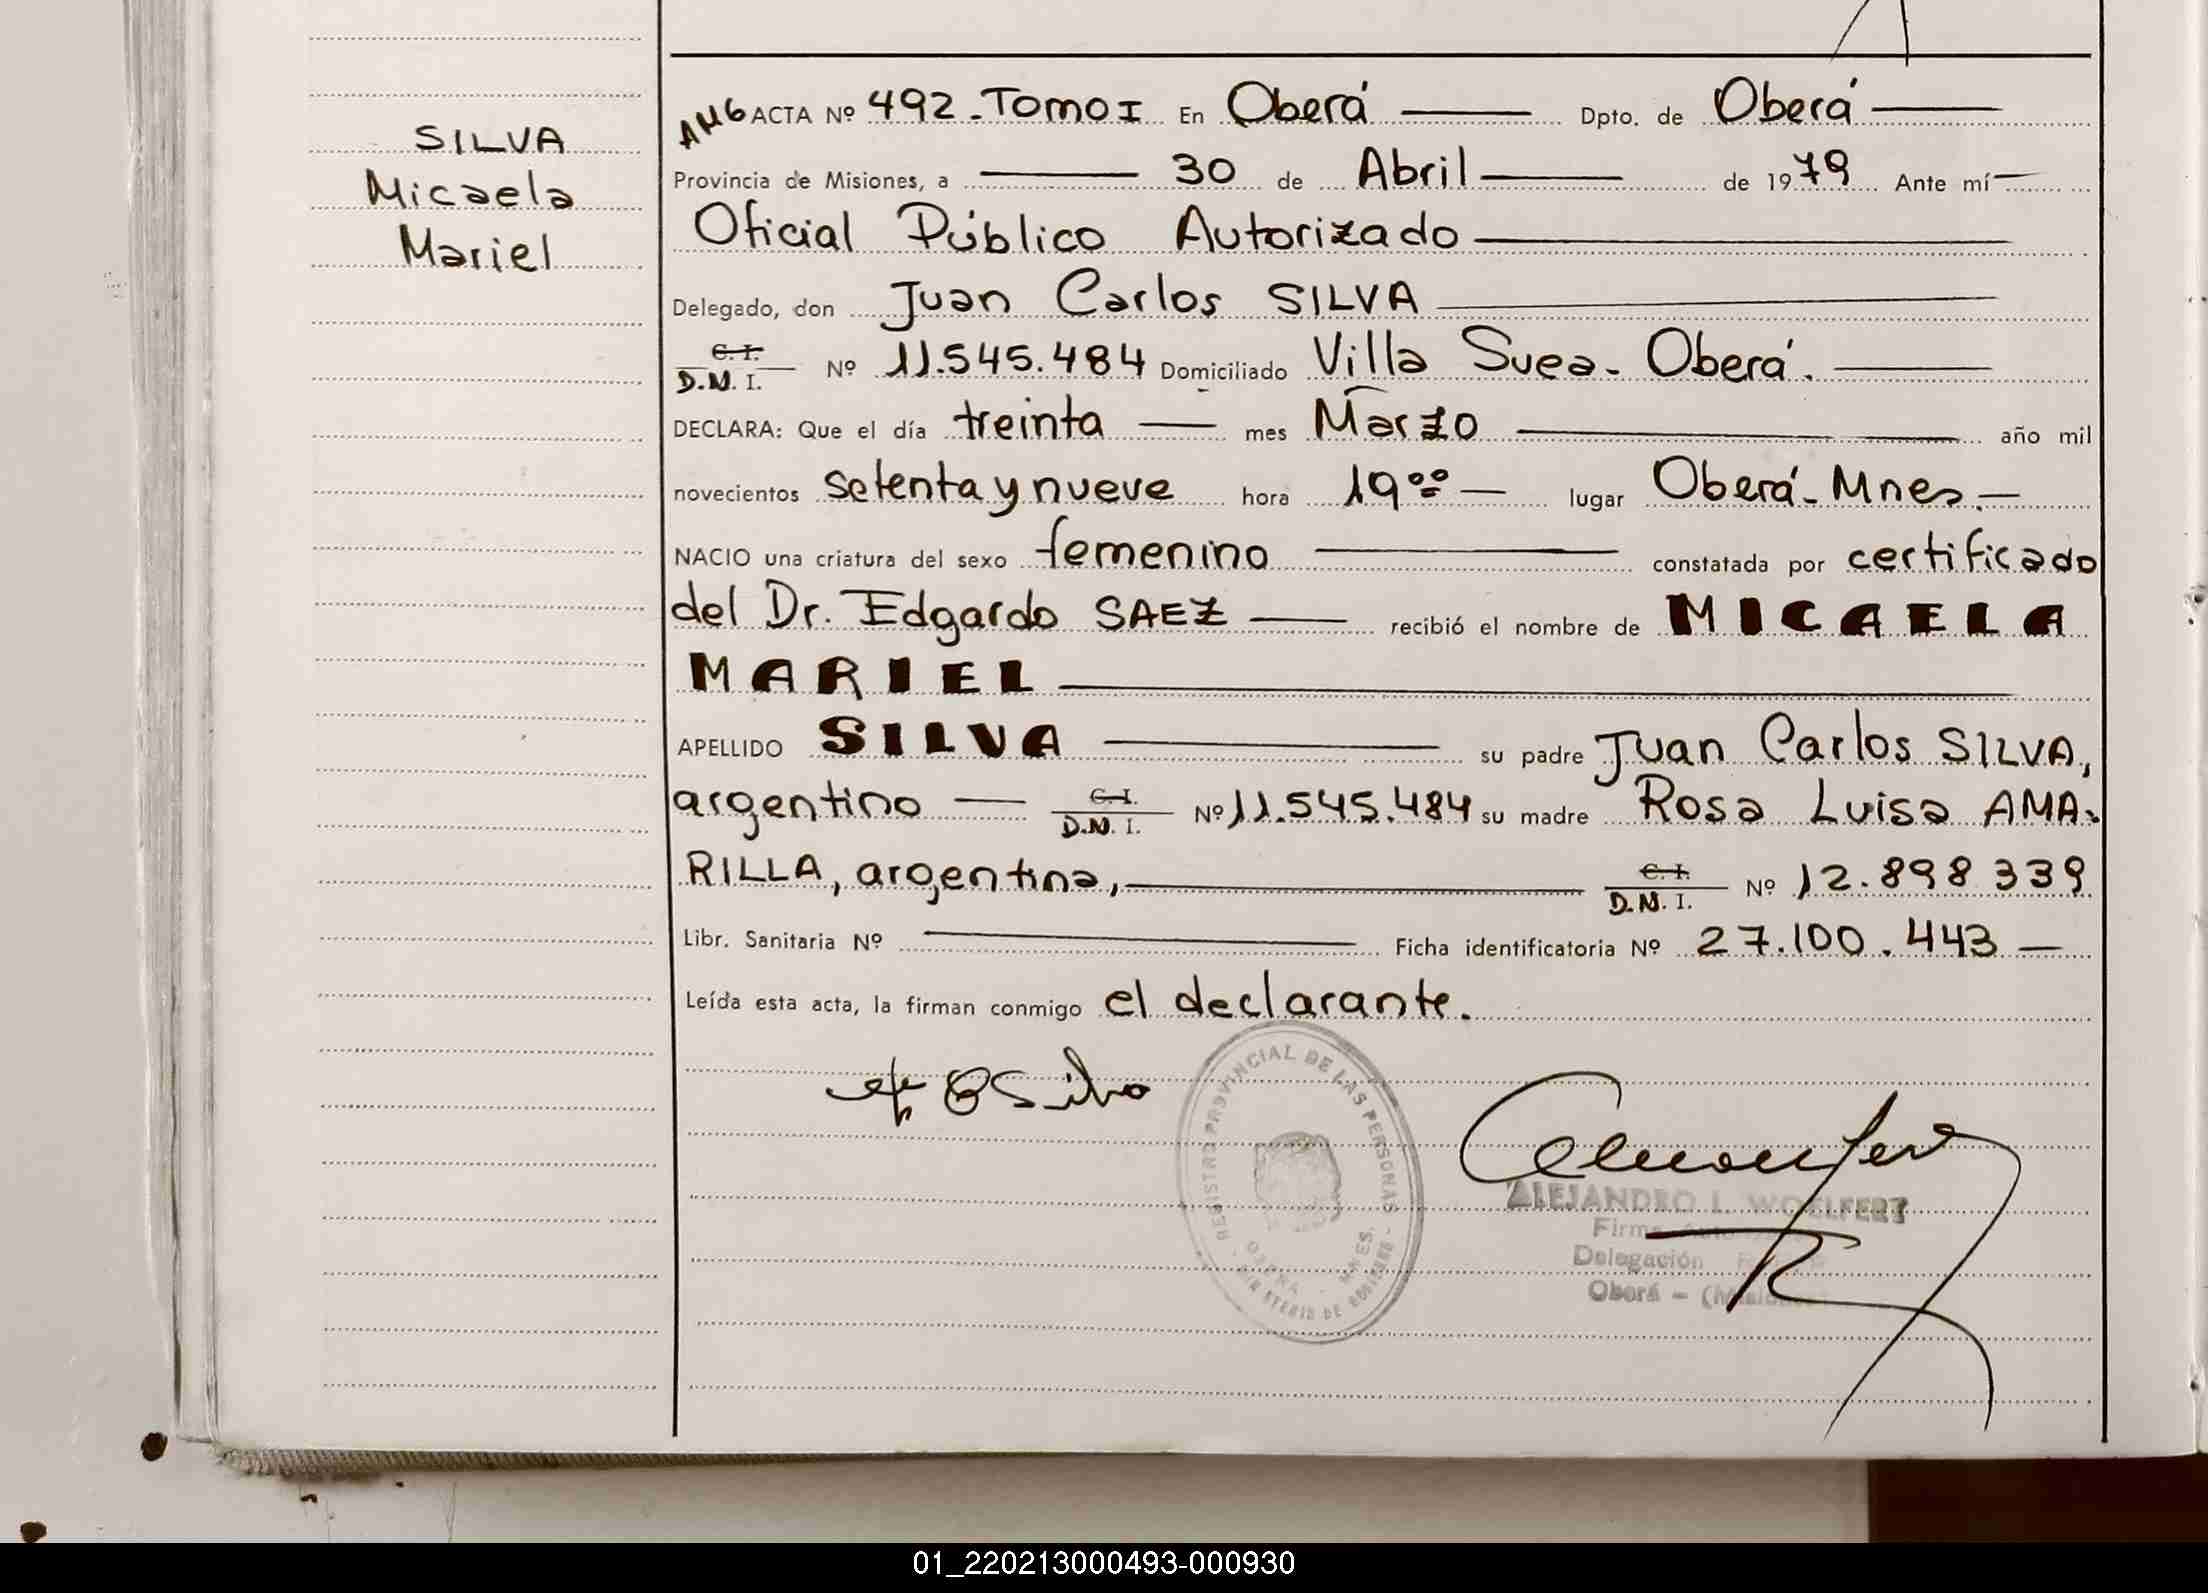 SILVA
Micaela
Mariel
AMG ACTA Nº 492 - Tomo I En Oberá Dpto. de Oberá
Provincia de Misiones, a 30 de Abril de 1979 Ante mí
Oficial Público Autorizado
Delegado, don Juan Carlos SILVA
C. I.
D.N. I. Nº 11.545.484 Domiciliado Villa Suea - Oberá.
DECLARA: Que el día treinta mes Marzo año mil
novecientos setenta y nueve hora 19°° lugar Oberá - Mnes.
NACIO una criatura del sexo femenino constatada por certificado
del Dr. Edgardo SAEZ recibió el nombre de MICAELA
MARIEL
APELLIDO SILVA su padre Juan Carlos SILVA,
argentino C. I.
D.N. I. Nº 11.545.484 su madre Rosa Luisa AMA-
RILLA, argentina, C. I.
D.N. I. Nº 12.898 339
Libr. Sanitaria Nº Ficha identificatoria Nº 27.100.443
Leída esta acta, la firman conmigo el declarante.
Silva
REGISTRO PROVINCIAL DE LAS PERSONAS - MINISTERIO DE GOBIERNO -
OBERA - MNES.
ALEJANDRO L. WOELFERT
Firma
Delegación
Oberá - (Misiones)
01_220213000493-000930